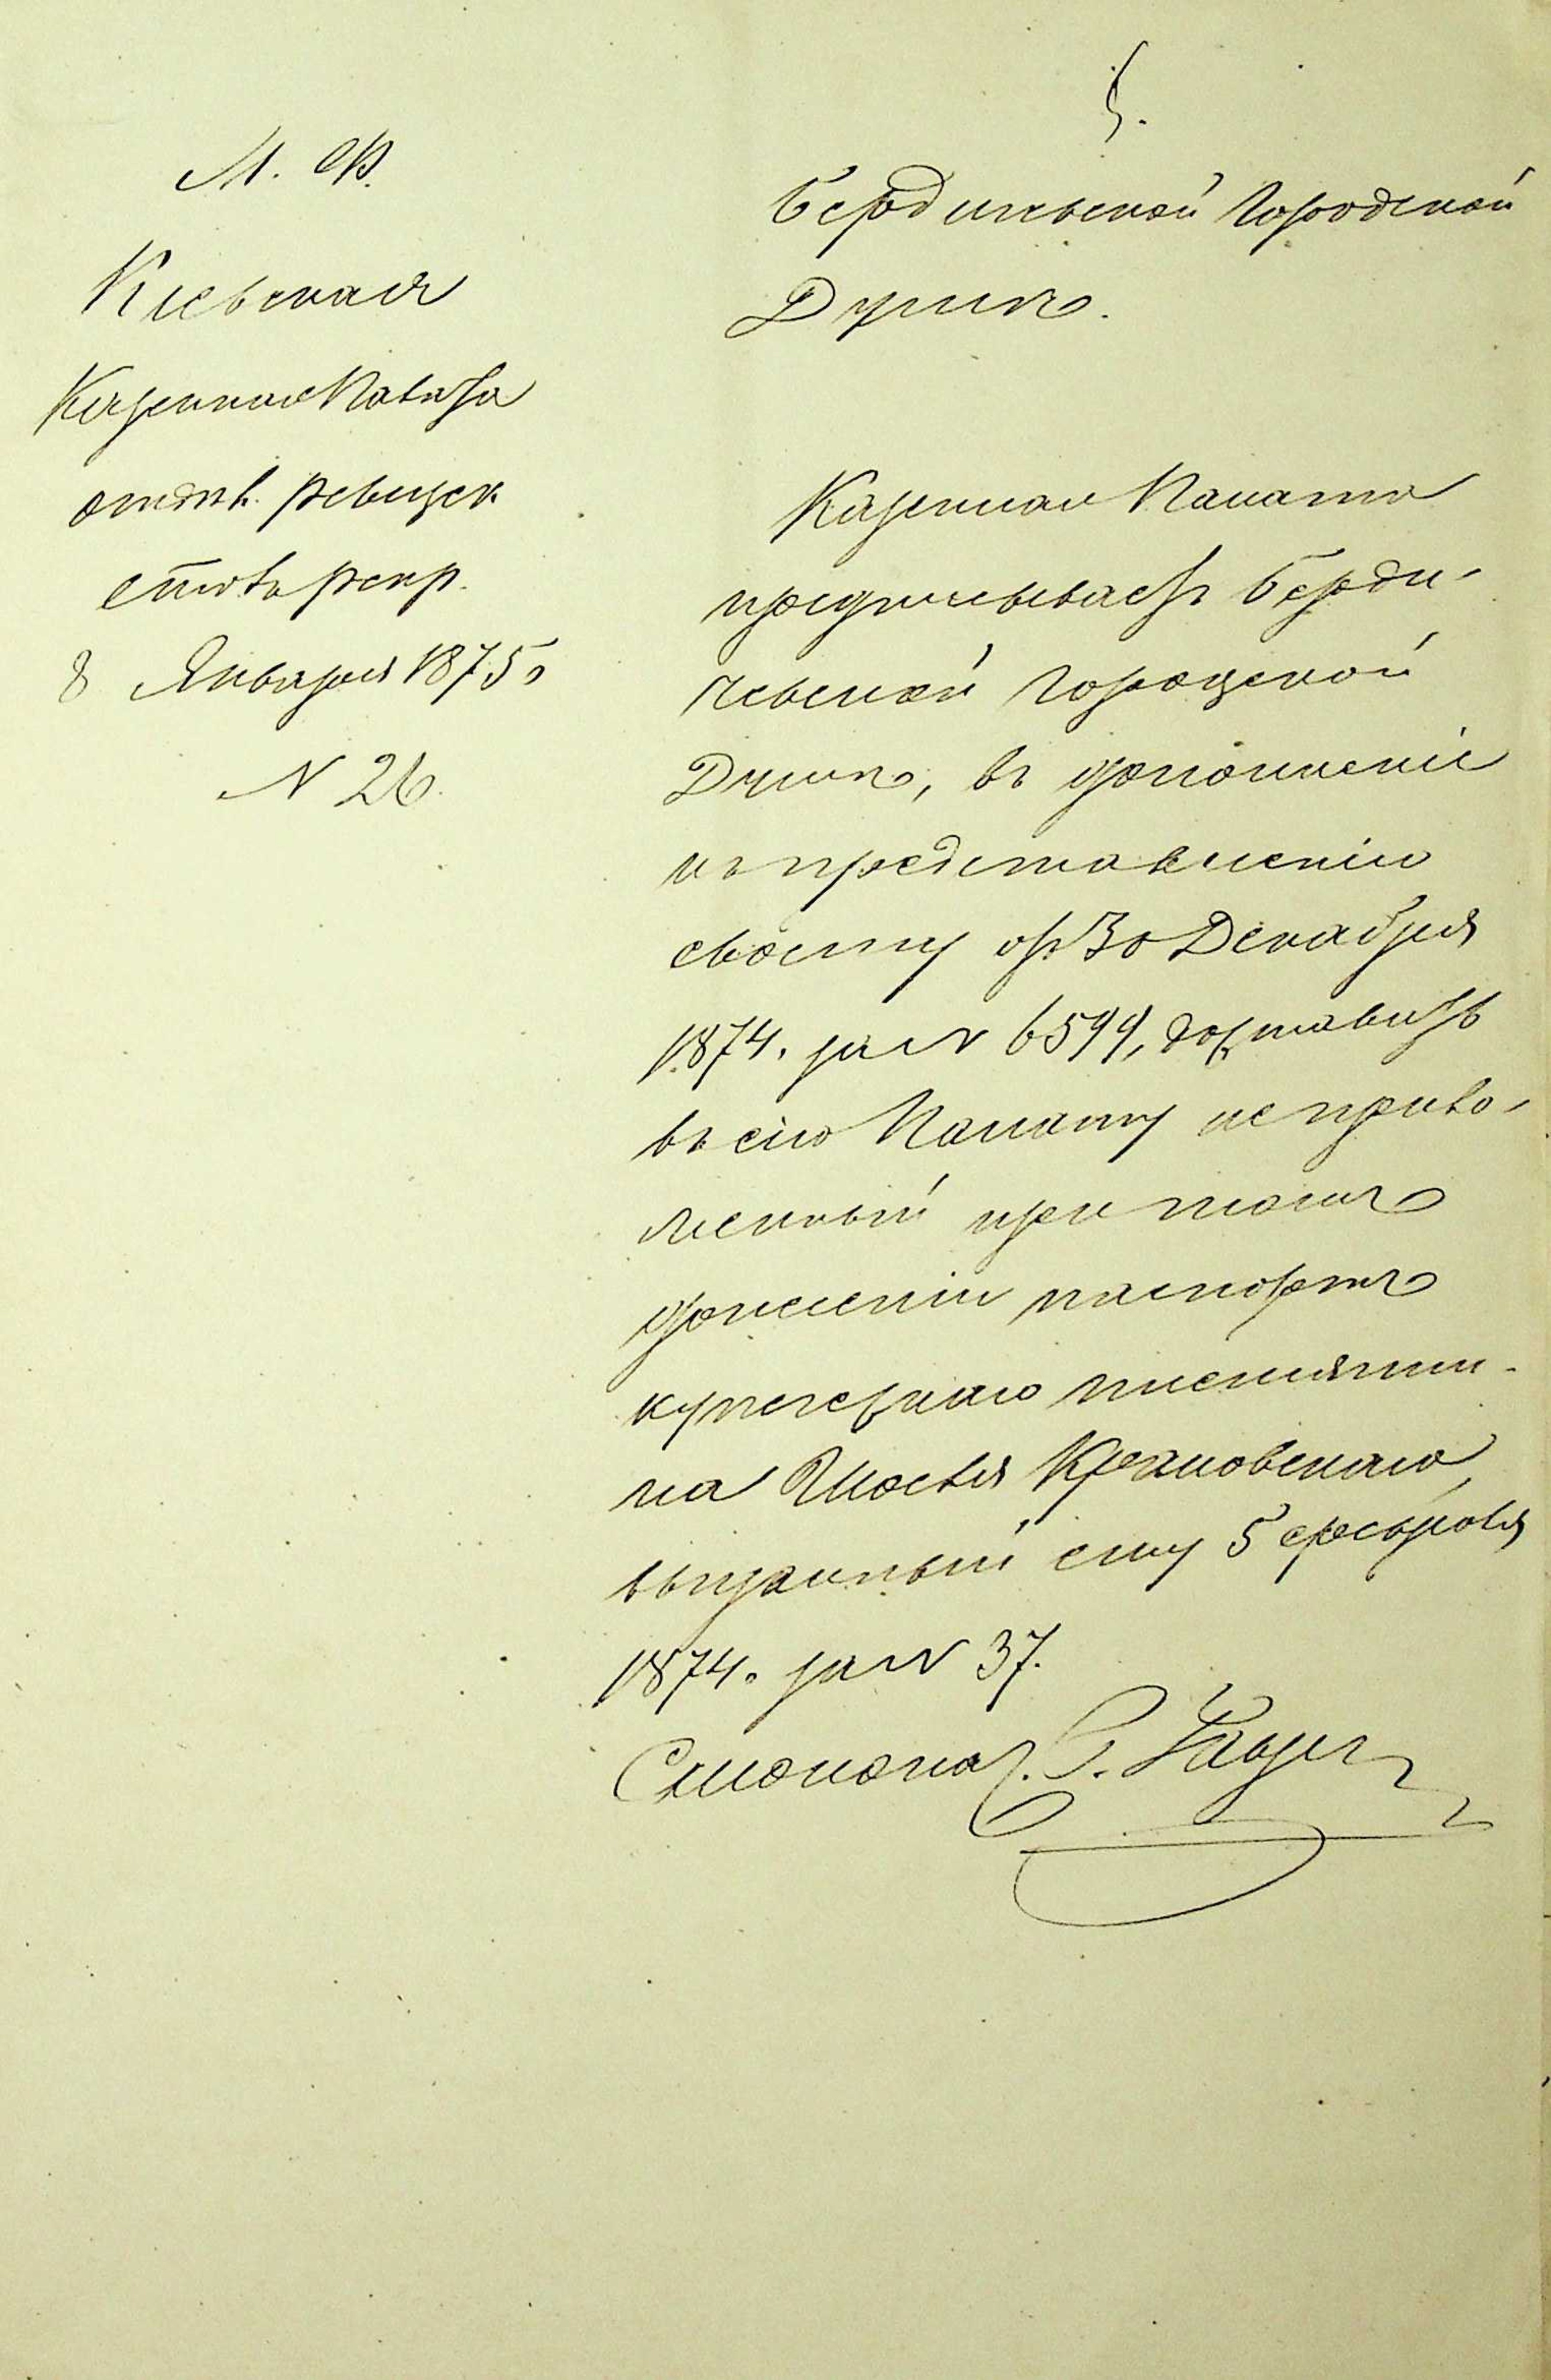 М. Ф.
Кіевская
Казенная Палата
отдѣл. Ревизск
столъ рекр.
8 Января 1875 г
N 26.
5.
Бердичевской Городской
Думѣ.
Казенная Палата
предписываетъ Берди-
чевской Городской
Думѣ, въ дополненіе
къ представленію
своему отъ 30 Декабря
1874 г. за N 6599, доставить
въ сію Палату не прило-
женный при томъ
донесеніи паспортъ
купеческаго племянни-
ка Шоеля Крамовскаго
выданный ему 5 февраля
1874 г. за N 37.